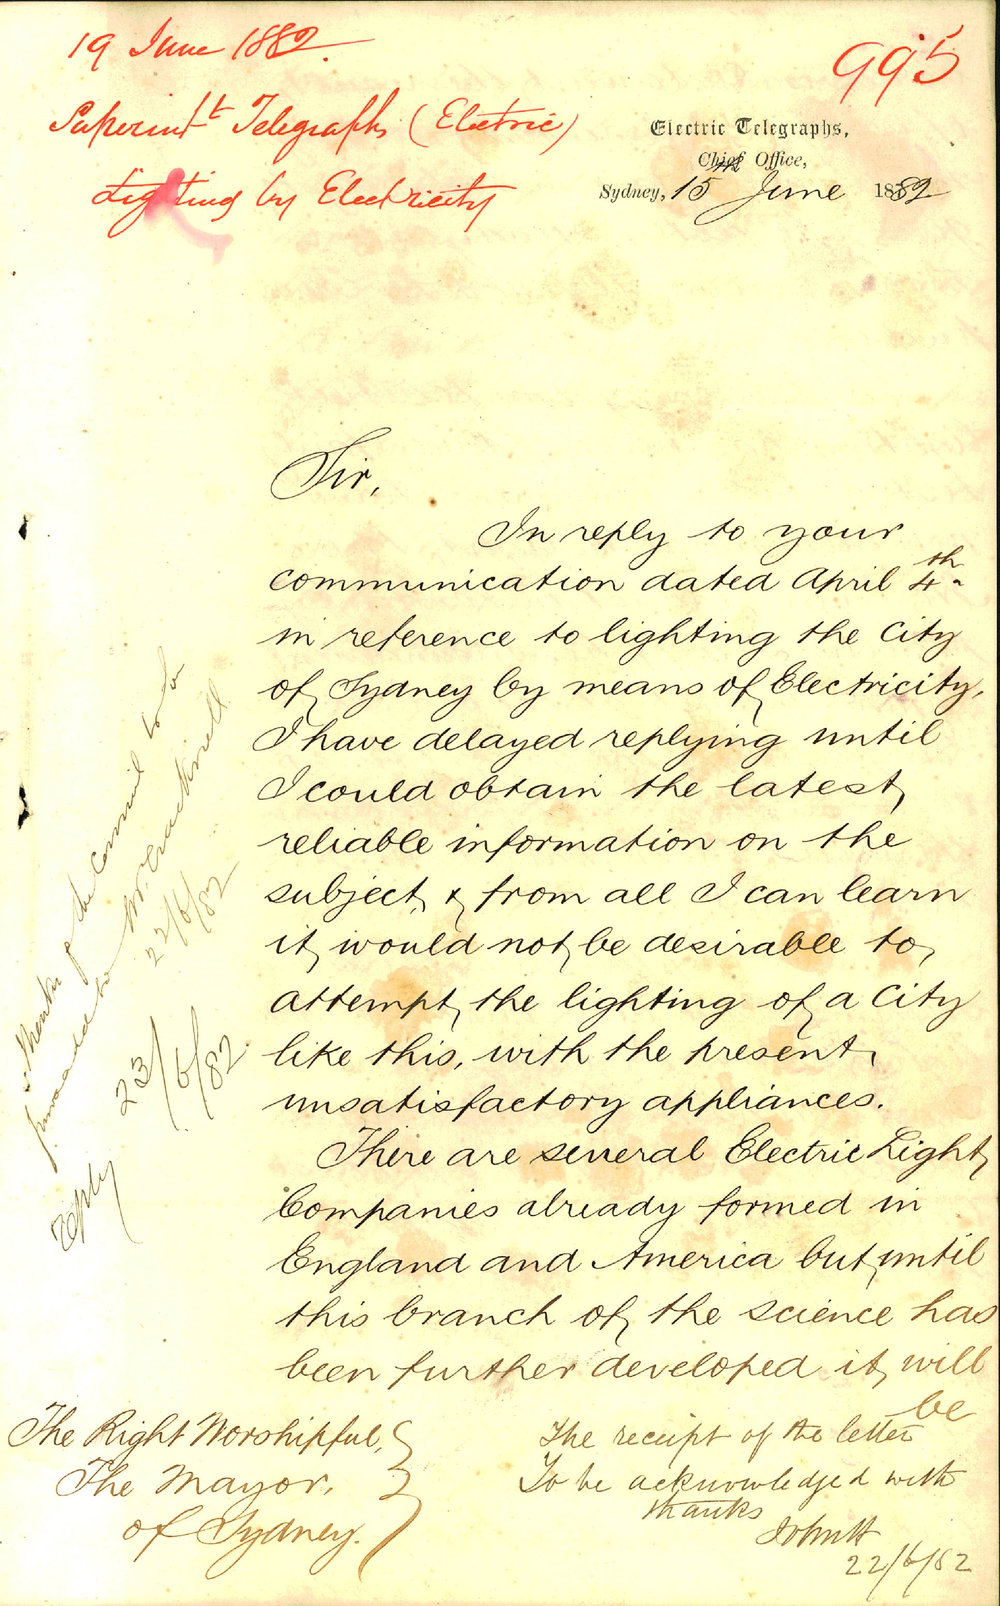 19 June 1882.
995
Superindt Telegraphs (Electric)
Lighting by Electricity
Electric Telegraphs,
Chief Office,
Sydney, 15 June 1882
Sir,
In reply to your
communication dated April 4th.
in reference to lighting the City
of Sydney by means of Electricity,
I have delayed replying until
I could obtain the latest,
reliable information on the
subject, & from all I can learn
it would not be desirable to
attempt the lighting of a City
like this, with the present
unsatisfactory appliances.
There are several Electric Light
Companies already formed in
England and America but until
this branch of the science has
been further developed it will
be
The Right Worshipful,
The Mayor,
of Sydney.
The receipt of the letter
To be acknowledged with
thanks
22/6/82
Thanks of the Council to be
forwarded to Mr. Cracknell
22/6/82
Reply
23/6/82